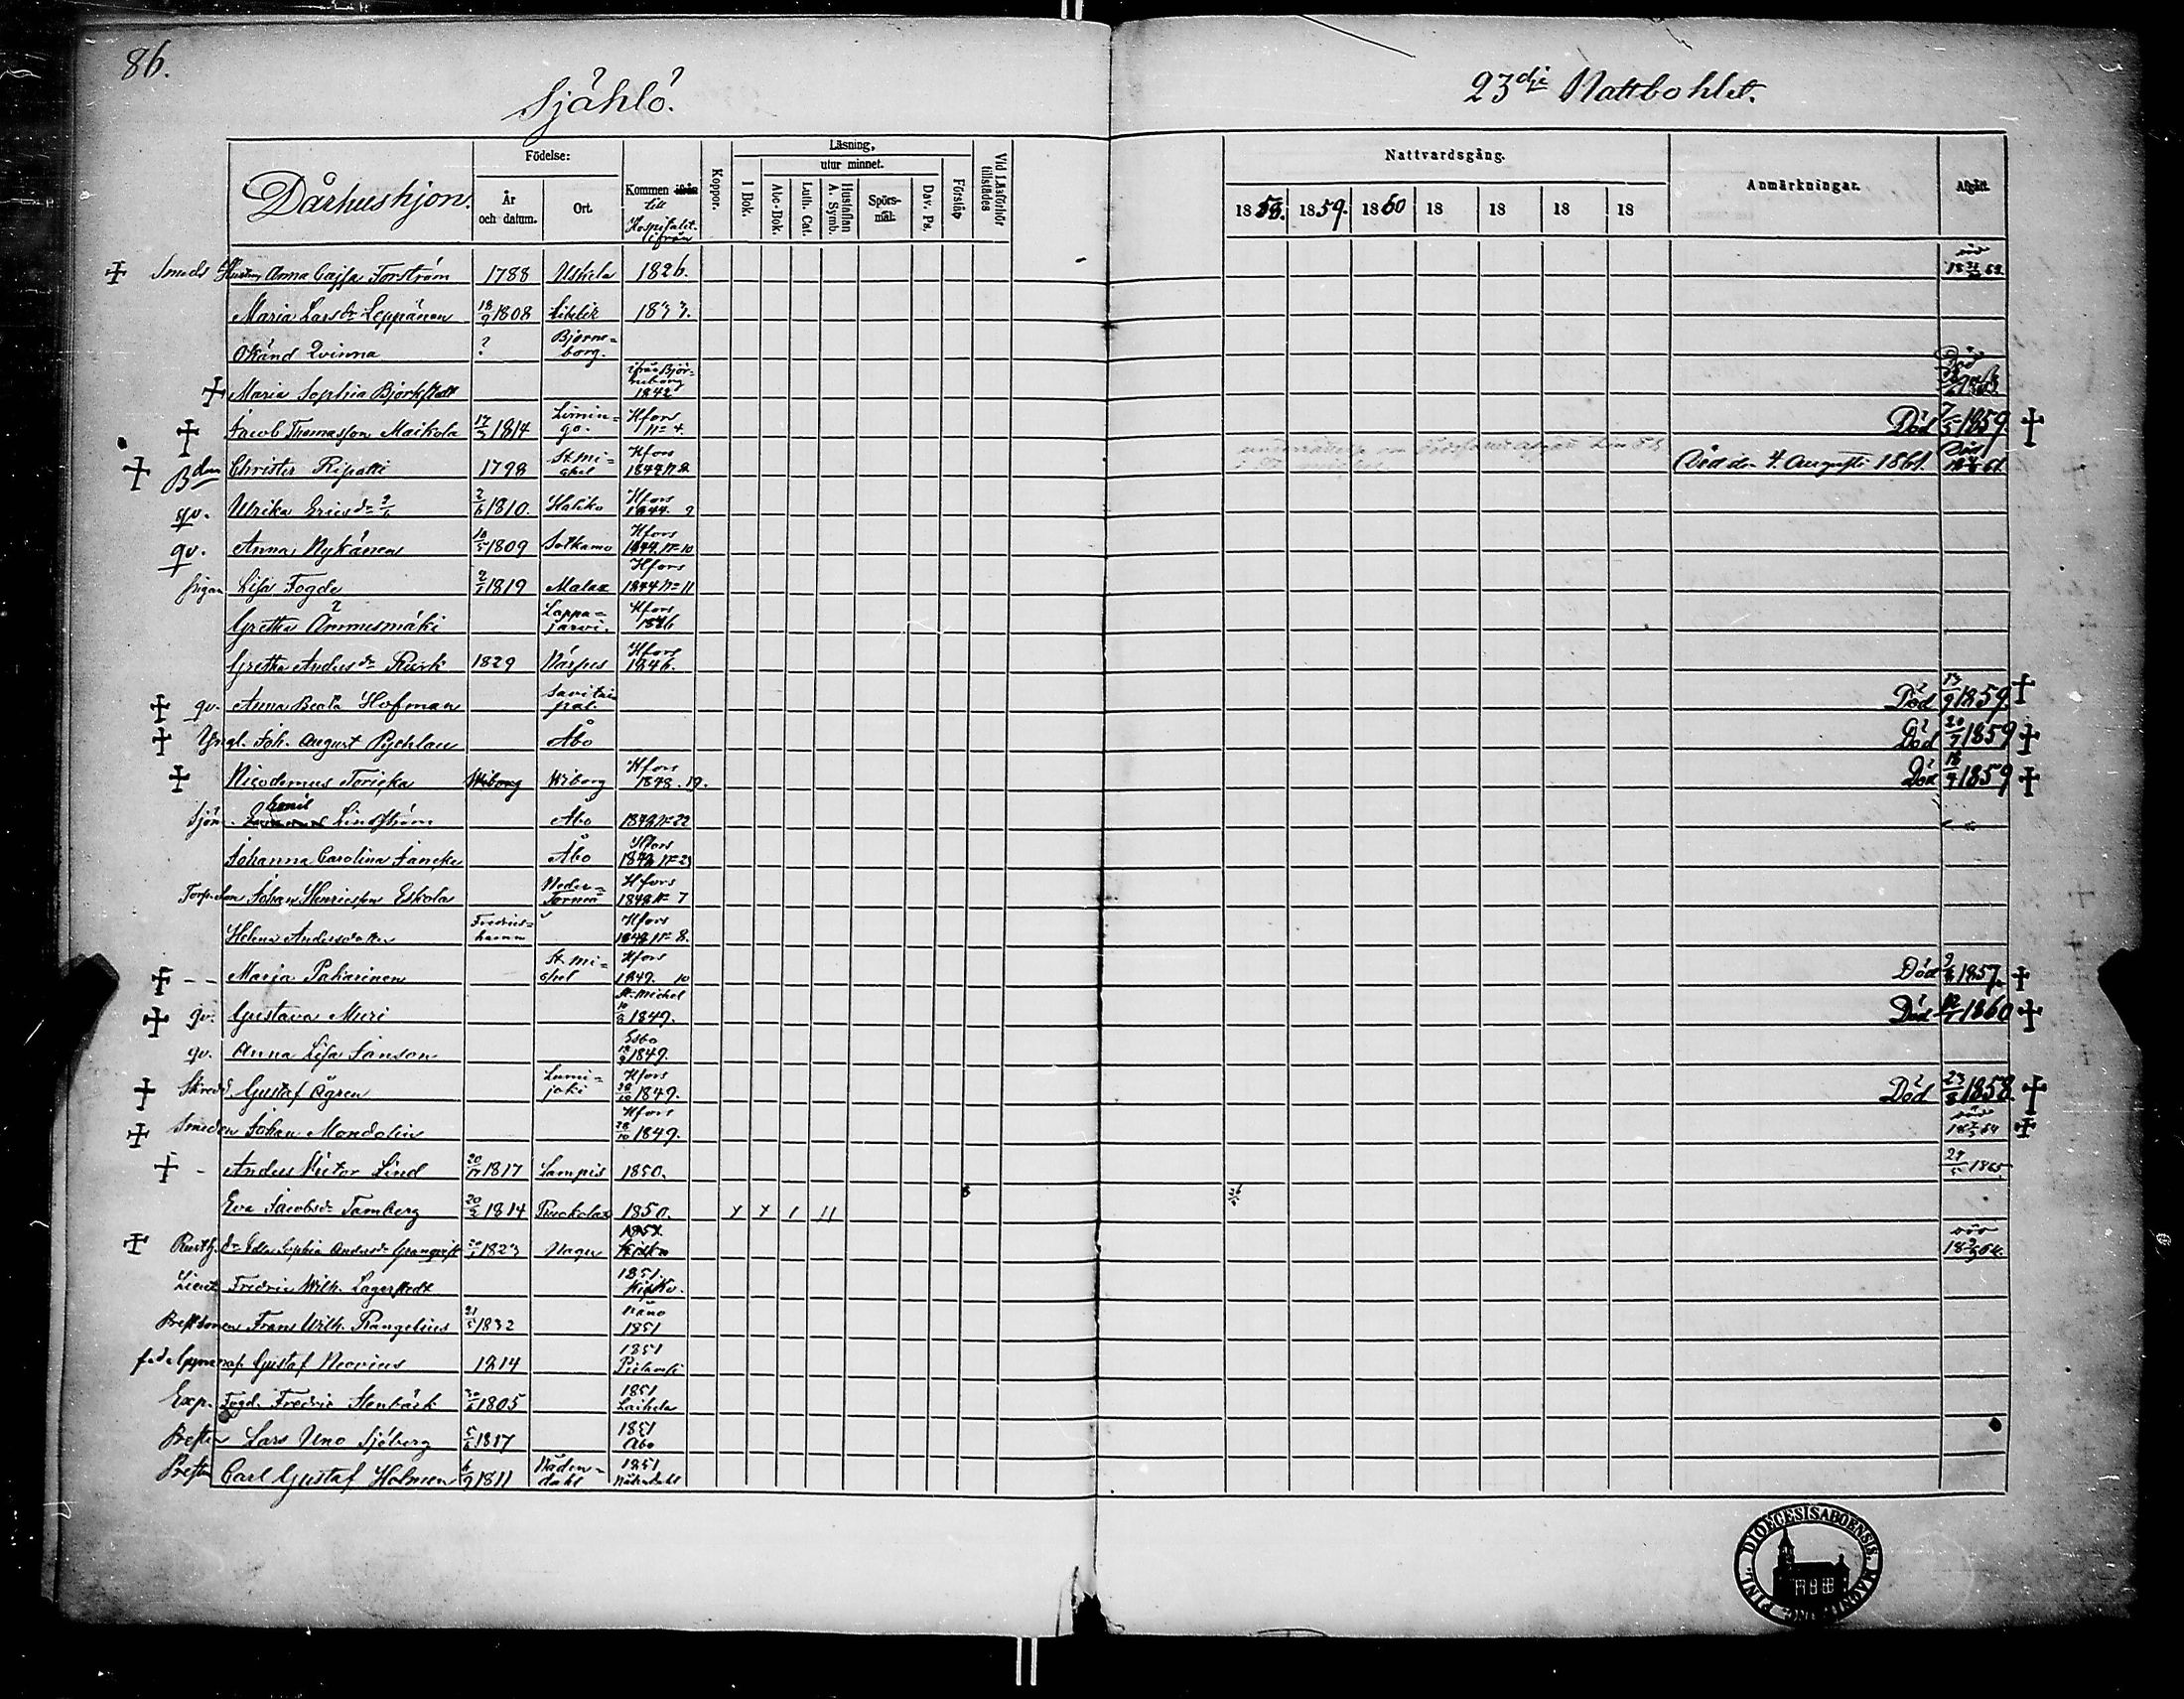 86.
Sjåhlö.
23dje Nattbohlet.
Dårhushjon.
Födelse:
År och datum.
Ort.
Kommen ifrån till Hospitalet ifrån
Koppor.
Läsning,
utur minnet.
I Bok.
Abc-Bok.
Luth. Cat.
Hustaflan A. Symb.
Spörsmål.
Dav. Ps.
Förstånd
Vid Läsförhör tillstädes
Nattvardsgång.
1858. 1859. 1860 18 18 18 18
Anmärkningar.
Afgått.
Smeds Hustru Anna Cajsa Forström 1788 Uskela 1826.
Maria Larsdr Leppänen 18/9 1808 1833.
Okänd Qvinna ? Björneborg.
Maria Sophia Björkstedt ifrån Björneborg 1842 Död
Jacob Thomasson Maikola 17/3 1814 Limingo. Hfors No 4. Död 7/5 1859.
Bden Christer Ripatti 1798 St Michel Hfors 1844 No 8 Död den 4. Augusti 1861. Död
qv. Ulrika Ericsdr 2/6 1810. Haliko Hfors 1844. 9
qv. Anna Nykänen 10/5 1809 Sotkamo Hfors 1844. No 10
pigan Lisa Fogde 2/5 1819 Malax Hfors 1844 No 11
Gretha Ammesmäki Lappajärvi. Hfors 1846
Gretha Andersdr Rusk 1829 Närpes Hfors 1846.
qv. Anna Beata Hofman Savitaipal. Död 13/9 1859.
Yngl. Joh. August Pychlau Åbo Död 20/7 1859
Nicodemus Toricka Wiborg Wiborg Hfors 1848. 19. Död 18/4 1859
Sjöm. Lindström Åbo 1848 No 22
Johanna Carolina Jancke Åbo Hfors 1848 No 23
Torp.son Johan Henricsson Eskola Neder-Torneå Hfors 1848 No 7
Helena Andersdotter Fredrickshamn Hfors 1848 No 8.
Maria Pakarinen St Michel Hfors 1849. 10 Död 9/8 1857.
qv. Gustava Muri St. Michel 10/8 1849. Död 12/7 1860
qv. Anna Lisa Janson Esbo 18/9 1849.
Skredd. Gustaf Ågren Lumijoki Hfors 28/10 1849. Död 23/8 1858.
Smeden Johan Mandolin Hfors 28/10 1849. död
Anders Victor Lind 20/17 1817 Lampis 1850. 29/5 1865
Eva Jacobsdr Tamberg 20/2 1814 Ruokolax 1850.
Rusth. dr Edla Sophia Andersdr Granqvist 1823 Nagu död
Lieut. Fredric Wilh. Lagerstedt 1851. Kisko.
Prestsonen Frans Wilh. Rangelius 21/5 1832 1851
Gustaf Neovius 1814 1851
Exp. Fogd. Fredric Stenbäck 1805 1851 Laihela
Presten Lars Uno Sjöberg 5/6 1817 1851 Åbo
Presten Carl Gustaf Holmen 6/9 1811 Nådendahl 1851 Nådendahl
DIOECESIS ABOENSIS. MAGNI DUC. FINL.